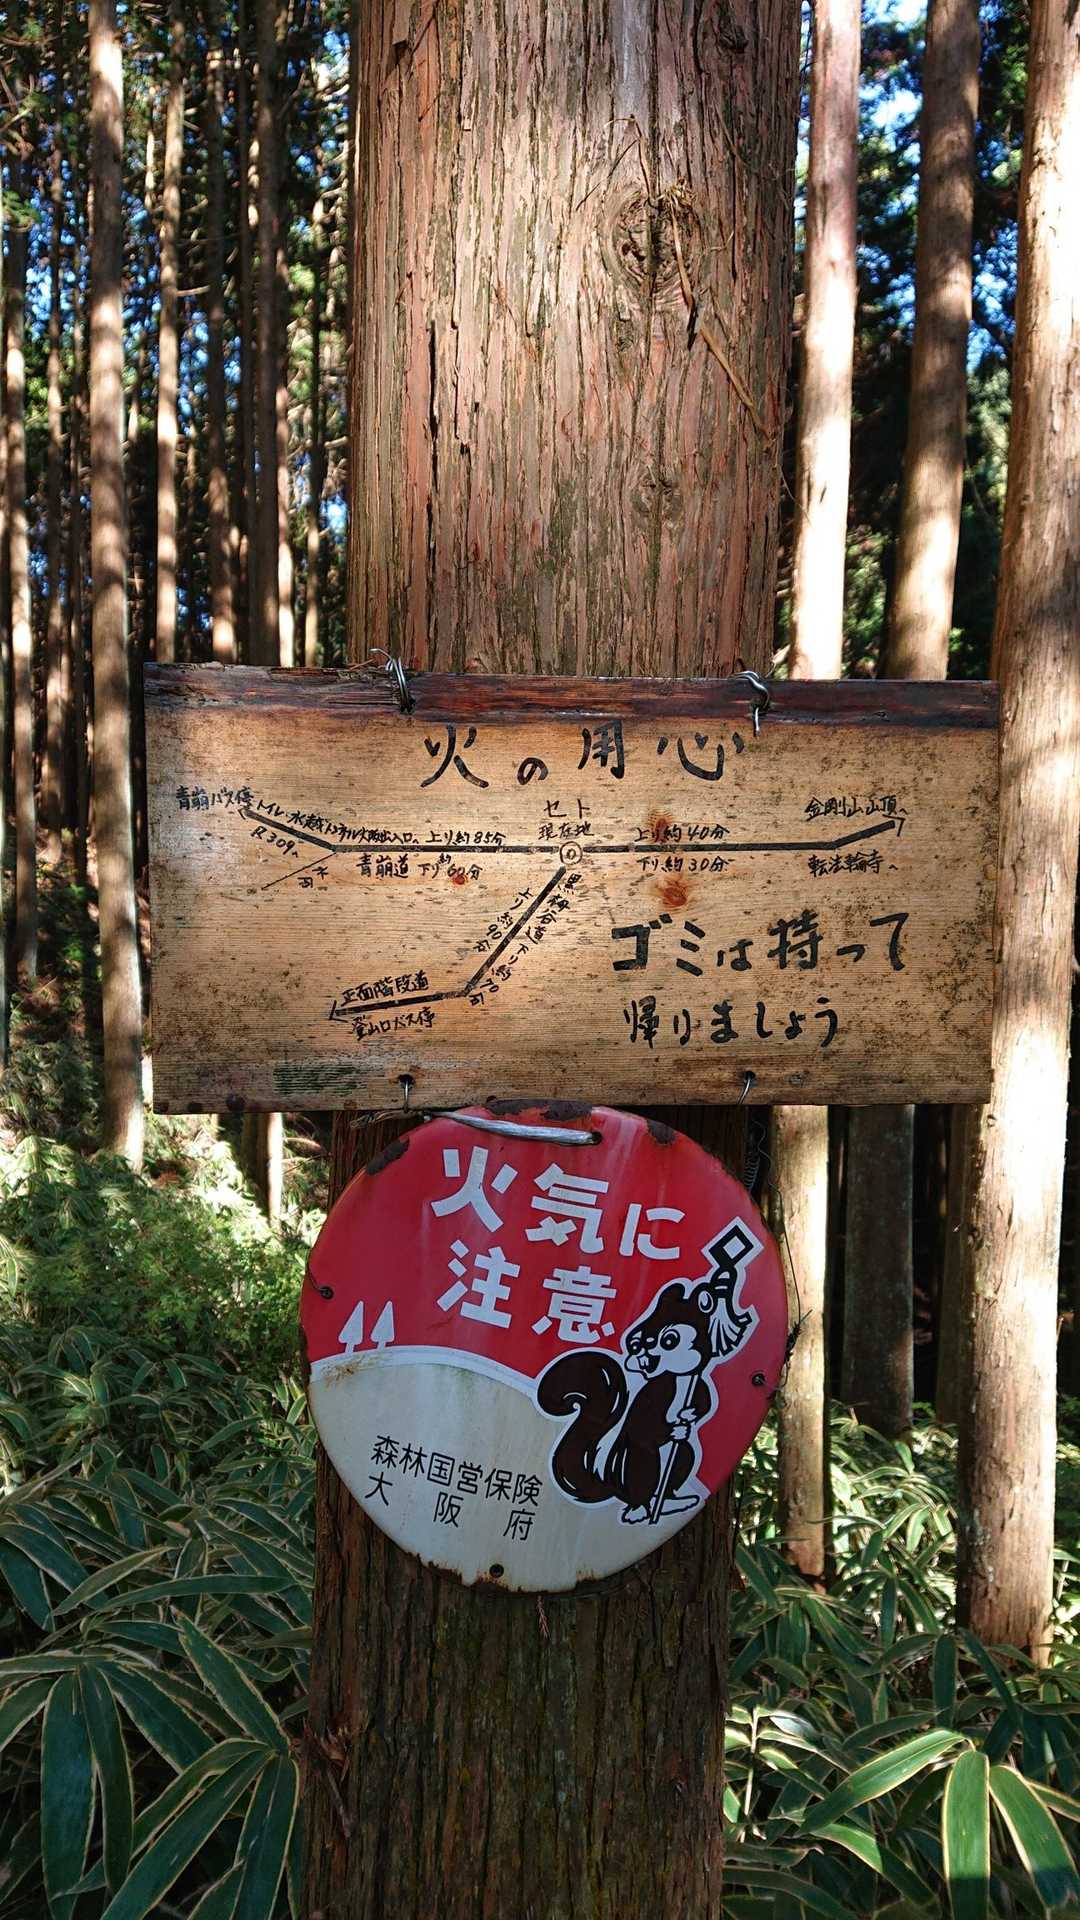 火の用心
青崩バス停
トイレ・水越トンネル大阪出入口へ
R309へ
上り約85分
青崩道 下り約60分
セト
現在地
上り約40分
下り約30分
金剛山山頂へ
転法輪寺へ
黒栂谷道 下り約70分
上り約90分
正面階段道
登山口バス停
ゴミは持って
帰りましょう
火気に
注意
森林国営保険
大阪府